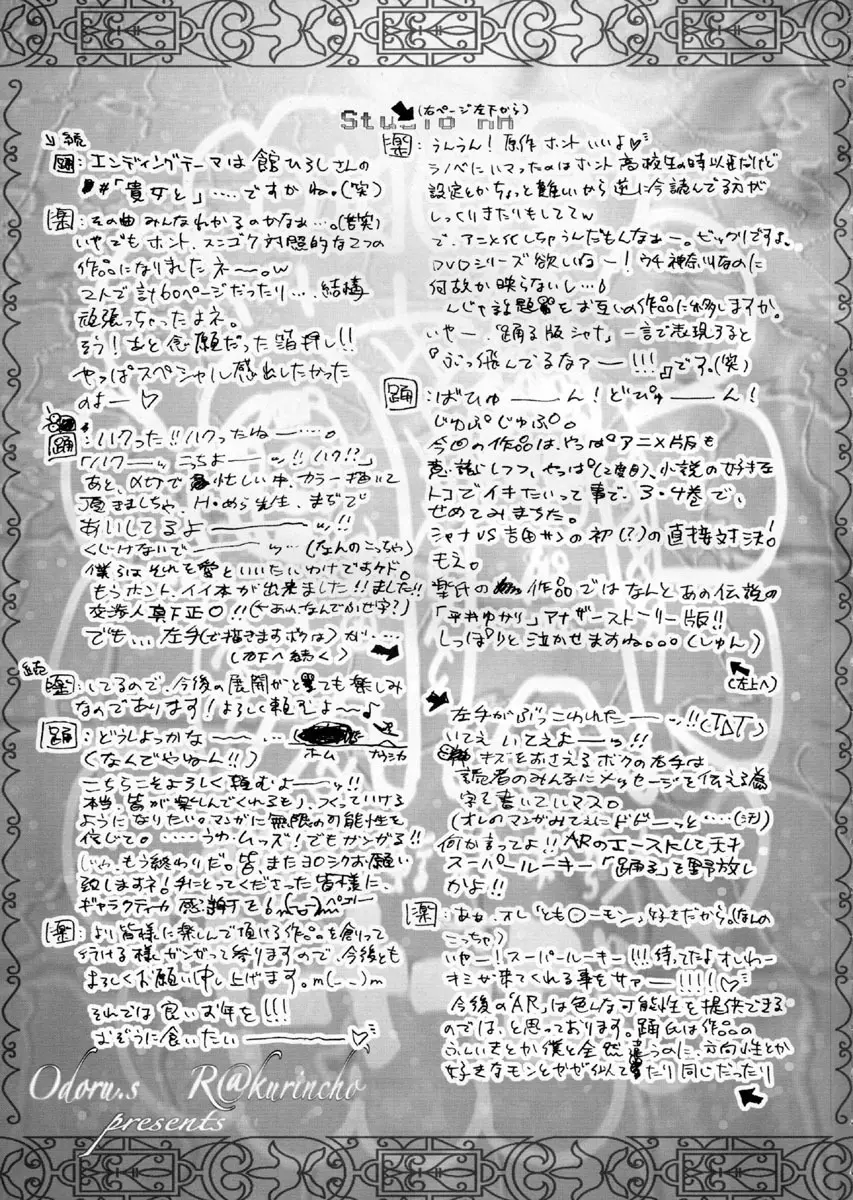 (右ページ左下から)
Studio nn
楽:うんうん!原作ホントいいよ♡
ラノベにハマったのはホント高校生の時以来だけど
設定とかちょっと難しいから逆に今読んでる方が
しっくりきたりもしててw
で、アニメ化しちゃうんだもんなぁー。ビックリですよ。
DVDシリーズ欲しいねー!ウチ神奈川なのに
何故か映らないし…!
んじゃ話題をお互いの作品に移しますか。
いやー、「踊る版シャナ」一言で表現すると
『ぶっ飛んでるなァー!!!』です。(笑)
踊:ばひゅーん!どぴゅーん!
じゅぷじゅぷ。
今回の作品は、やっぱアニメ版も
意識しつつ、やっぱ(2度目)、小説の好きな
トコでイキたいって事で、3・4巻で、
せめてみまちた。
シャナVS吉田サンの初(?)の直接対決!
もえ。
楽氏の作品ではなんとあの伝説の
「平井ゆかり」アナザーストーリー版!!
しっぽりと泣かせますね。。。(しゅん)
(左上へ)
続
踊:エンディングテーマは舘ひろしさんの
#「貴女と」……ですかね。(笑)
楽:その曲みんなわかるのかなぁ…。(苦笑)
いやでもホント、スンゴク対照的な2つの
作品になりましたネー。w
2人で計60ページだったり…、結構
頑張っちゃったよネ。
そう!あと念願だった箔押し!!
やっぱスペシャル感出したかった
のよー♡
踊:ハクった!!ハクったねー…。
「ハクーッ こっちよーッ!!ハク!?」
あと、〆切で忙しい中、カラー描いて
頂きましちゃ、H・めら先生、まぢで
あいしてるよーッ!!
くじけないでーッ…(なんのこっちゃ)
僕らはそれを愛といいたいわけですケド。
もうホント、イイ本が出来ました!!ました!!
交渉人真下正〇!!(←あれなんでかせ字?)
でも...左手(で描きますボクは)が…
(右下へ続く)
左手がぶっこわれたーッ!!(TДT)
いてえいてえよーッ!!
キズをおさえるボクの右手は
読者のみんなにメッセージを伝える為
字を書いていマス。
(オレのマンガみてぇにドドーっと……(汗)
何か言ってよ!!ARのエースとして天才
スーパールーキー「踊る」を野放し
かよ!!
楽:あぁ、オレ「とも〇ーモン」好きだから。(なんの
こっちゃ)
いやー!スーパールーキー!!!待ってたよオレわー
キミが来てくれる事をサァー!!!!(♡
今後の「AR」は色んな可能性を提供できる
のでは、と思っております。踊氏は作品の
ふんいきとか僕と全然違うのに、方向性とか
好きなモンとかが似てたり同じだったり
続
楽:してるので、今後の展開がとても楽しみ
なのであります!よろしく頼むよ〜♪
踊:どうしよっかなー…。
ホーム
ナウシカ
(なんでやねん!!)
こちらこそよろしく頼むよーッ!!
本当、皆が楽しんでくれるもノ、つくっていける
ようになりたい。マンガに無限の可能性を
信じて。……うわ・ムッズ!でもガンがる!!
じゃ、もう終わりだ。皆、またヨロシクお願い
致しますネ!手にとってくださった皆様に、
ギャラクティカ感謝ナビ6m(_ _)mペコリー
楽:より皆様に楽しんで頂ける作品を創って
行ける様ガンガって参りますので、今後とも
よろしくお願い申し上げます。m(_ _)m
それでは良いお年を!!!
おぞうに食いたいー♡
Odoru.s R@kurincho
presents